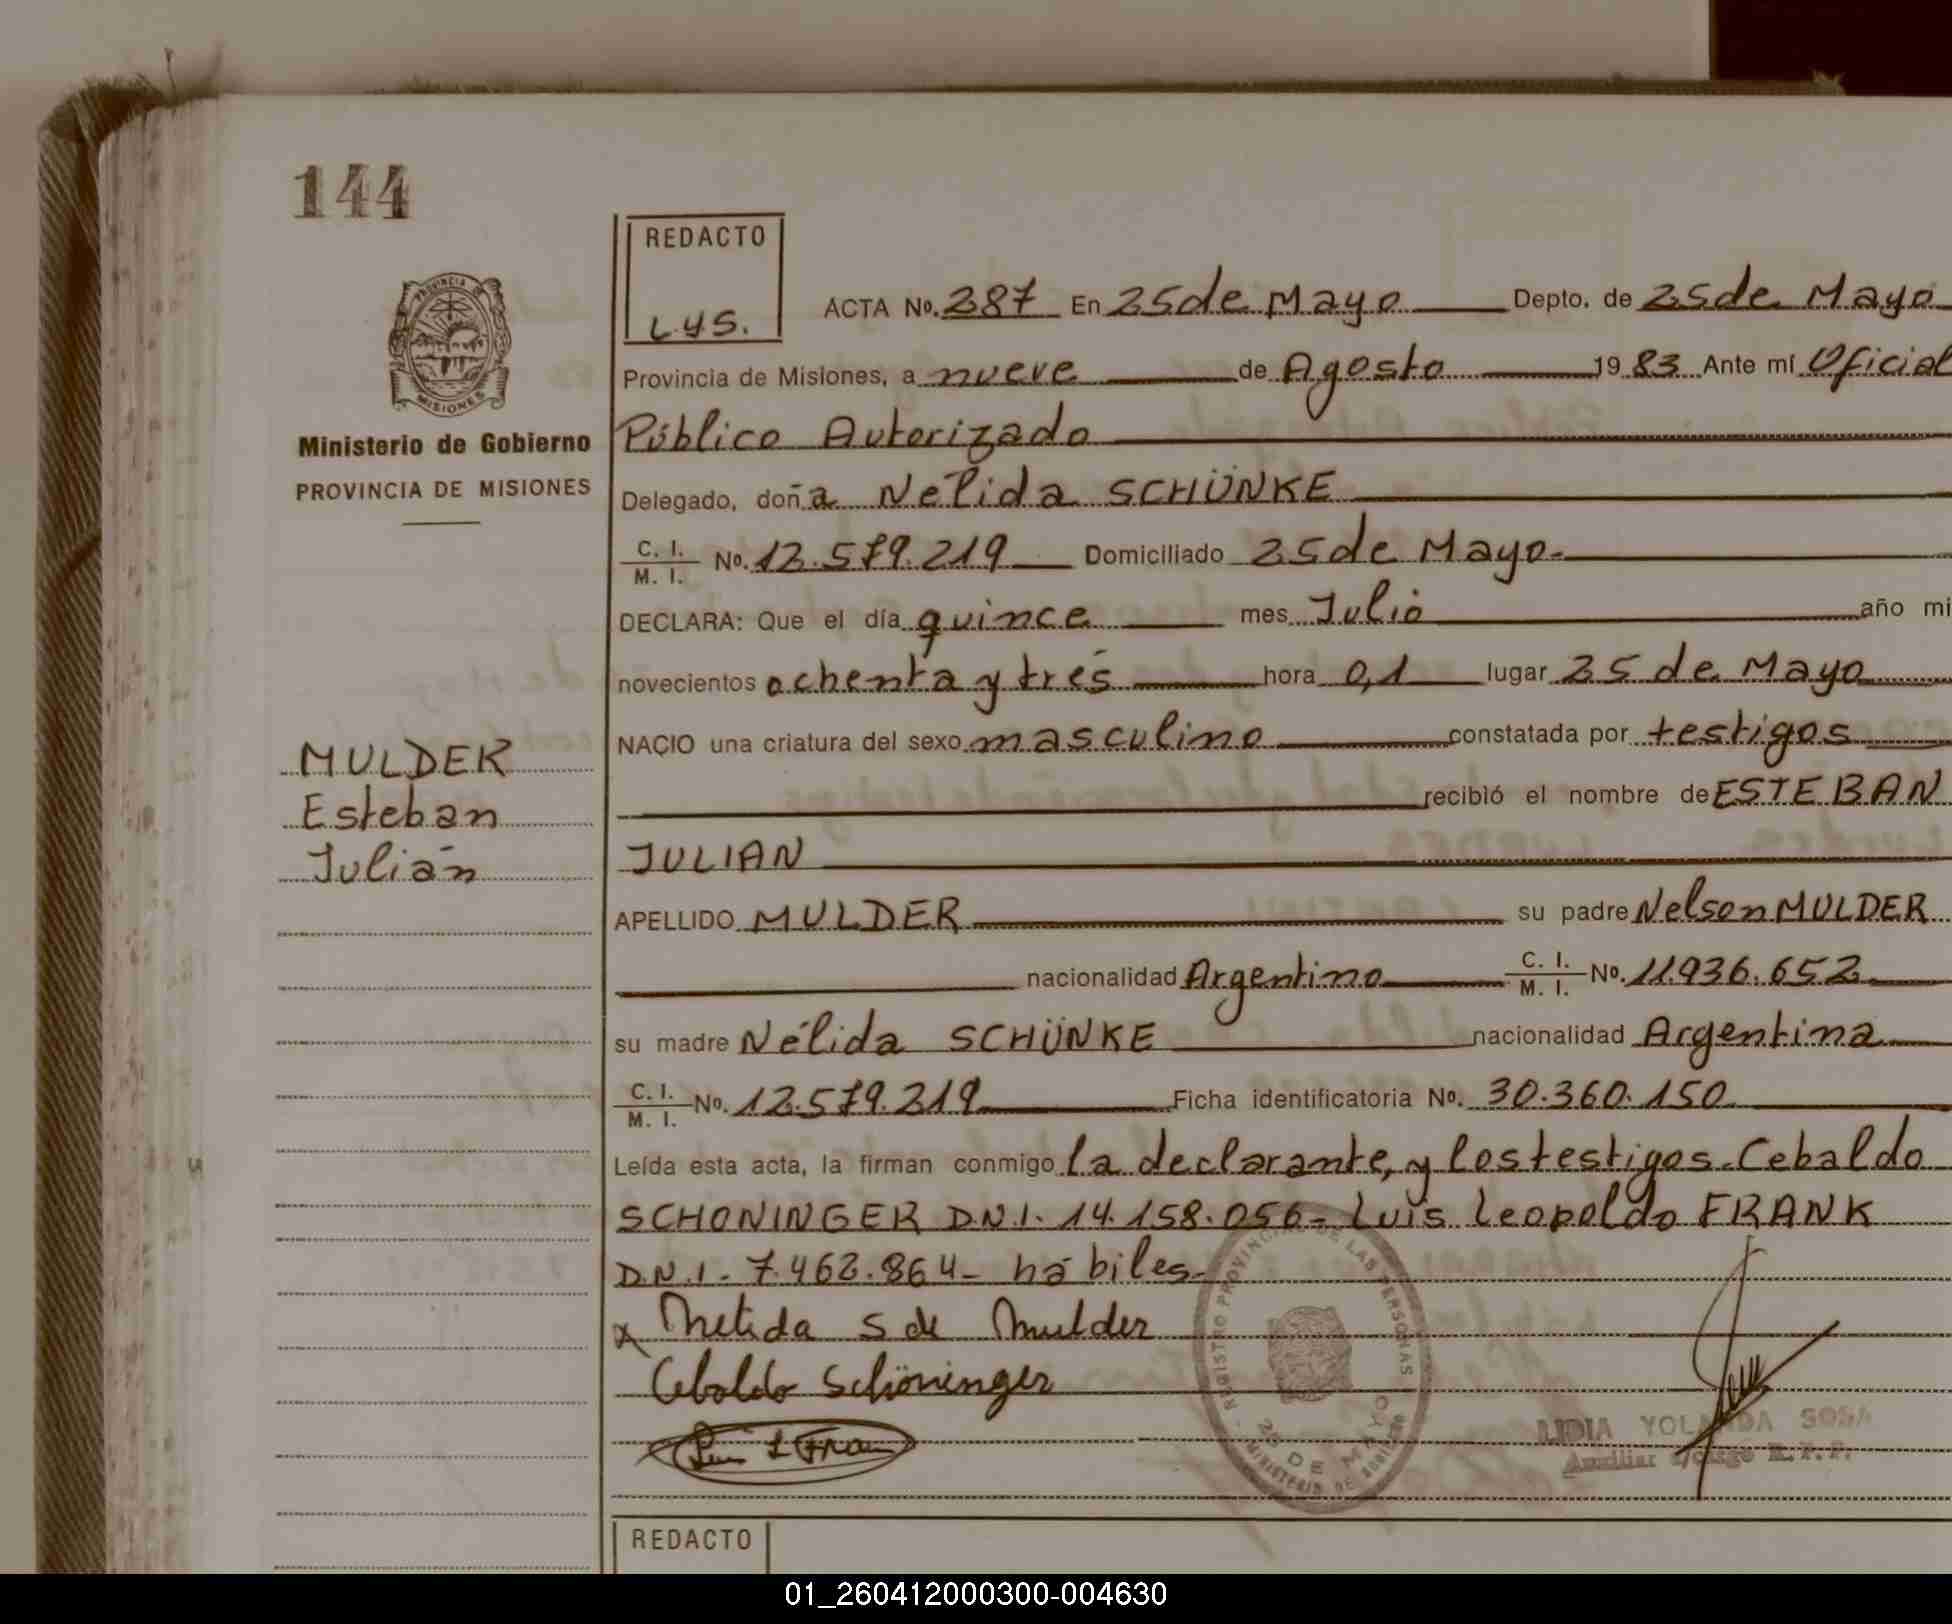 144
REDACTO
LYS.
ACTA No. 287 En 25 de Mayo Depto. de 25 de Mayo
Provincia de Misiones, a nueve de Agosto 19 83 Ante mí Oficial
Público Autorizado
Ministerio de Gobierno
PROVINCIA DE MISIONES
Delegado, doña Nélida SCHÜNKE
C. I.
M. I. No. 12.579.219 Domiciliado 25 de Mayo.
DECLARA: Que el día quince mes Julio año mi
novecientos ochenta y trés hora 0,1 lugar 25 de Mayo
NACIO una criatura del sexo masculino constatada por testigos
recibió el nombre de ESTEBAN
JULIAN
MULDER
Esteban
Julián
APELLIDO MULDER su padre Nelson MULDER
nacionalidad Argentino C. I.
M. I. No. 11.936.652
su madre Nélida SCHÜNKE nacionalidad Argentina
C. I.
M. I. No. 12.579.219 Ficha identificatoria No. 30.360.150
Leída esta acta, la firman conmigo la declarante, y los testigos. Cebaldo
SCHONINGER D.N.I. 14.158.056- Luis Leopoldo FRANK
D.N.I- 7.462.864- hábiles-
x Nelida S de Mulder
Cebaldo Schöninger
Luis L Fran
REGISTRO PROVINCIAL DE LAS PERSONAS
25 DE MAYO
MINISTERIO DE GOBIERNO
LIDIA YOLANDA SOSA
Auxiliar a/cargo R.P.P.
REDACTO
01_260412000300-004630